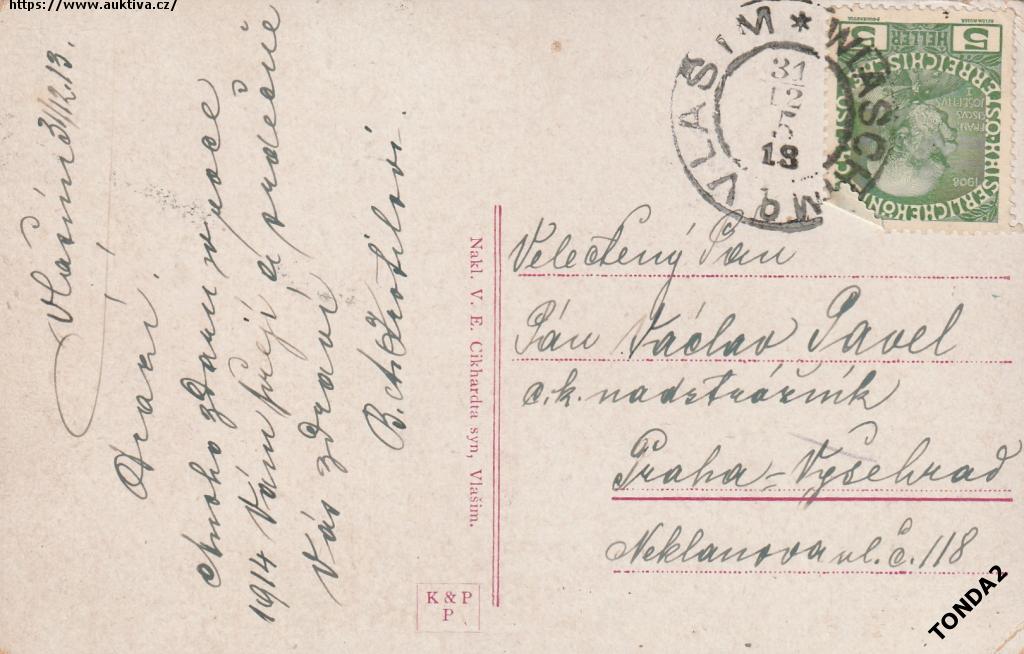 https://www.auktiva.cz/
Vlašim 31/12.13.
Drazí.
Mnoho zdaru v roce
1914 Vám přeji a srdečně
Vás zdraví
B.
Nakl. V. E. Cikhardta syn, Vlašim.
K & P
P
VLAŠIM * WLASCHIM
31
12
13
5 HELLER 5
1908
Velectěný Pan
Pán Václav Pavel
c.k. nadstrážník
Praha-Vyšehrad
Neklanova ul. č. 118
TONDA2